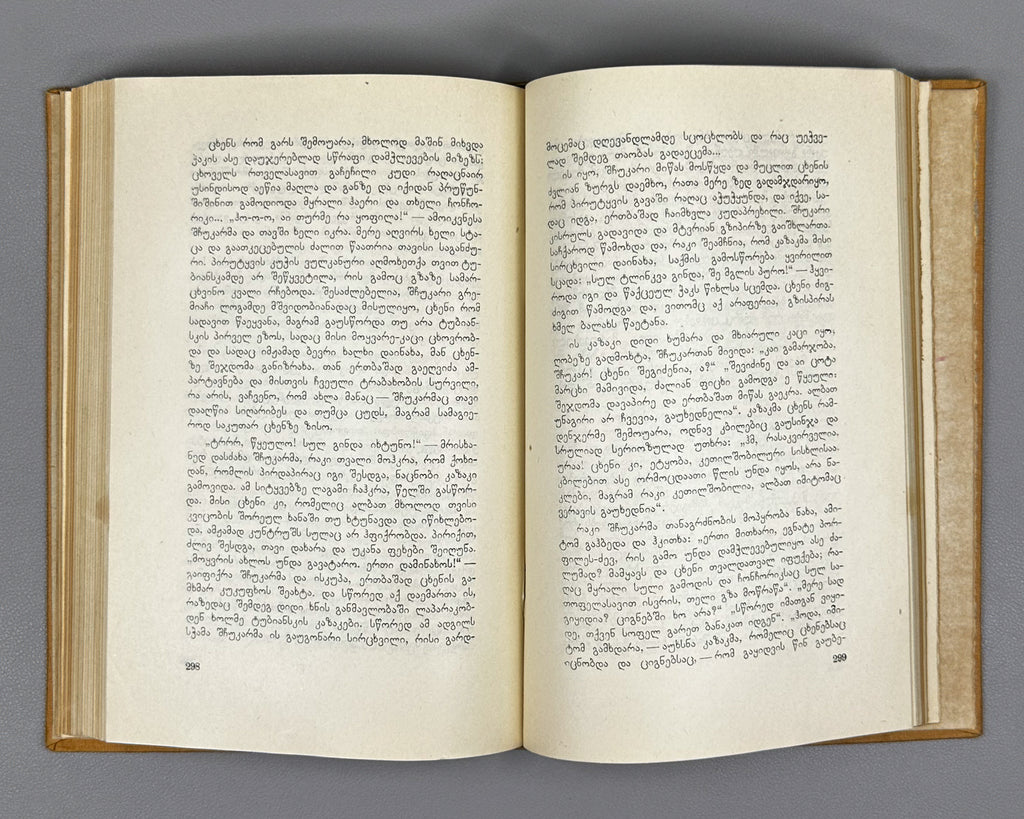 ცხენს რომ გარს შემოუარა, მხოლოდ მაშინ მიხვდა
ჰაკის ასე დაუჯერებლად სწრაფი დამჭლევების მიზეზს:
ცხოველს რთველასავით გაჩეჩილი კუდი რაღაცნაირ
უსინდისოდ აეწია მაღლა და განზე და იქიდან პრუწუნ-
შიშინით გამოდიოდა მყრალი ჰაერი და თხელი ჩონჩო-
რიკი... „ჰო-ო-ო, აი თურმე რა ყოფილა!“ — ამოიკვნესა
შჩუკარმა და თავში ხელი იკრა. მერე აღვირს ხელი სტა-
ცა და გაათკეცებულის ძალით წაათრია თავისი საგანძუ-
რი. პირუტყვის კუჭის ვულკანური ამოხეთქა თვით ტუ-
ბიანსკამდე არ შეწყვეტილა, რის გამოც გზაზე სამარ-
ცხვინო კვალი რჩებოდა. შესაძლებელია, შჩუკარი გრე-
მიაჩი ლოგამდე მშვიდობიანადაც მისულიყო, ცხენი რომ
სადავით წაეყვანა, მაგრამ გაუსწორდა თუ არა ტუბიან-
სკის პირველ ეზოს, სადაც მისი მოყვარე-კაცი ცხოვრობ-
და და სადაც იმჟამად ბევრი ხალხი დაინახა, მან ცხენ-
ზე შეჯდომა განიზრახა. თან ერთბაშად გაეღვიძა ამ-
პარტავნება და მისთვის ჩვეული ტრაბახობის სურვილი,
რა არის, ვაჩვენო, რომ ახლა მანაც — შჩუკარმაც თავი
დააღწია სიღარიბეს და თუმცა ცუდს, მაგრამ სამაგიე-
როდ საკუთარ ცხენზე ზისო.
„ტრრრ, წყეულო! სულ გინდა იხტუნო!“ — მრისხა-
ნედ დასძახა შჩუკარმა, რაკი თვალი მოჰკრა, რომ ქოხი-
დან, რომლის პირდაპირაც იგი შესდგა, ნაცნობი კაზაკი
გამოვიდა. ამ სიტყვებზე ლაგამი ჩაჰკრა, წელში გასწორ-
და. მისი ცხენი კი, რომელიც ალბათ მხოლოდ თვისი
კვიცობის შორეულ ხანაში თუ ხტუნავდა და იწიხლებო-
და, ამჟამად კუნტრუშს სულაც არ ჰფიქრობდა. პირიქით,
ძლივ შესდგა, თავი დახარა და უკანა ფეხები შეილუნა.
„მოყვრის ახლოს უნდა გავატარო. ერთი დამინახოს!“ —
გაიფიქრა შჩუკარმა და ისკუპა, ერთბაშად ცხენის გა-
მხმარ კუკუფოს შეახტა. და სწორედ აქ დაემართა ის,
რაზედაც შემდეგ დიდი ხნის განმავლობაში ლაპარაკობ-
დენ ხოლმე ტუბიანსკის კაზაკები. სწორედ ამ ადგილს
სჭამა შჩუკარმა ის გაუგონარი სირცხვილი, რისი გარდ-
298
მოცემაც დღევანდლამდე სცოცხლობს და რაც უეჭვე-
ლად შემდეგ თაობას გადაეცემა...
ის იყო, შჩუკარი მიწას მოსწყდა და მუცლით ცხენის
ძვლიან ზურგს დაემხო, რათა მერე ზედ გადამჯდარიყო,
რომ პირუტყვის გავაში რაღაც აჭუჭყუნდა, და იქვე, სა-
დაც იდგა, ერთბაშად ჩაიმხვლა კუდაპრეხილი. შჩუკარი
კისრულს გადავიდა და მტვრიან გზიპირზე გაიშხლართა.
საჩქაროდ წამოხდა და, რაკი შეამჩნია, რომ კაზაკმა მისი
სირცხვილი დაინახა, საქმის გამოსწორება ყვირილით
სცადა: „სულ ტლინკვა გინდა, შე მგლის პურო!“ — ჰყვი-
როდა იგი და წაქცეულ ჰაკს წიხლსა სცემდა. ცხენი ძიგ-
ძიგით წამოდგა და, ვითომც აქ არაფერია, გზისპირას
ხმელ ბალახს წაეტანა.
ის კაზაკი დიდი ხუმარა და მხიარული კაცი იყო;
ღობეზე გადმოხტა, შჩუკართან მივიდა: „კაი გამარჯობა,
შჩუკარ! ცხენი შეგიძენია, ა?“ „შევიძინე და აი ცოტა
მარცხი მამივიდა, ძალიან ფიცხი გამოდგა ე წყეული:
შეჯდომა დავაპირე და ერთბაშათ მიწას გაეკრა. ალბათ
უნაგირი არ ჩვევია, გაუხედნელია“. კაზაკმა ცხენს რამ-
დენჯერმე შემოუარა, ოდნავ კბილებიც გაუსინჯა და
სრულიად სერიოზულად უთხრა: „ჰმ, რასაკვირველია,
ურაა! ცხენი კი, ეტყობა, კეთილშობილური სისხლისაა.
კბილებით ასე ორმოცდაათი წლის უნდა იყოს, არა ნა-
კლები, მაგრამ რაკი კეთილშობილია, ალბათ იმიტომაც
ვერავის გაუხედნია“.
რაკი შჩუკარმა თანაგრძნობის მოპყრობა ნახა, ამი-
ტომ გაჰბედა და ჰკითხა: „ერთი მითხარი, ეგნატე პორ-
ფილეს-ძევ, რის გამო უნდა დამჭლევებულიყო ასე ძა-
ლუმად? მამყავს და ცხენი თვალდათვალ იფუქება; რა-
ღაც მყრალი სული გამოდის და ჩონჩორიკსაც სულ სა-
თოფელასავით ისვრის, თელი გზა მოწრაწა“. „მერე სად
გიყიდია? ციგნებში ხო არა?“ „სწორედ იმათგან ვიყი-
დე, თქვენ სოფელ გარეთ ბანაკათ იდგენ“. „ჰოდა, იმი-
ტომ გამხდარა, — აუხსნა კაზაკმა, რომელიც ცხენებსაც
იცნობდა და ციგნებსაც, — რომ გაყიდვის წინ გაუბე-
299